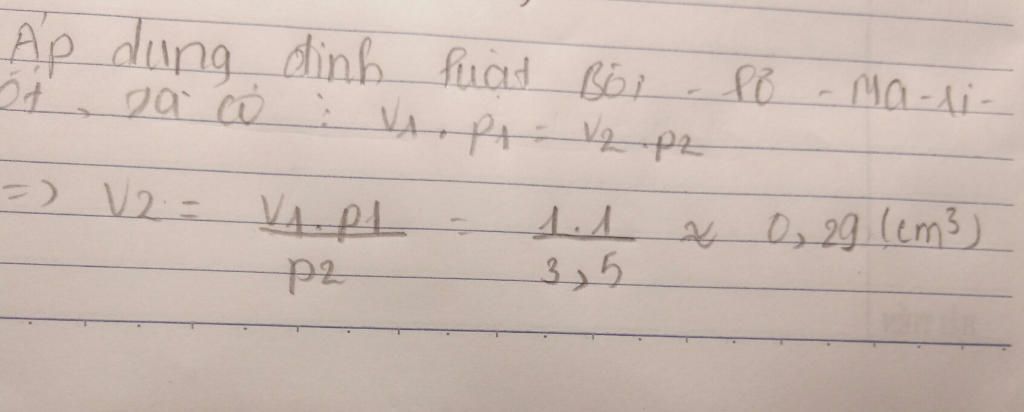 Áp dụng định luật Bôi - lơ - Ma-ri-
ốt, ta có : V1 . p1 = V2 . p2
=> V2 = V1.p1 / p2 = 1.1 / 3,5 ≈ 0,29 (cm³)